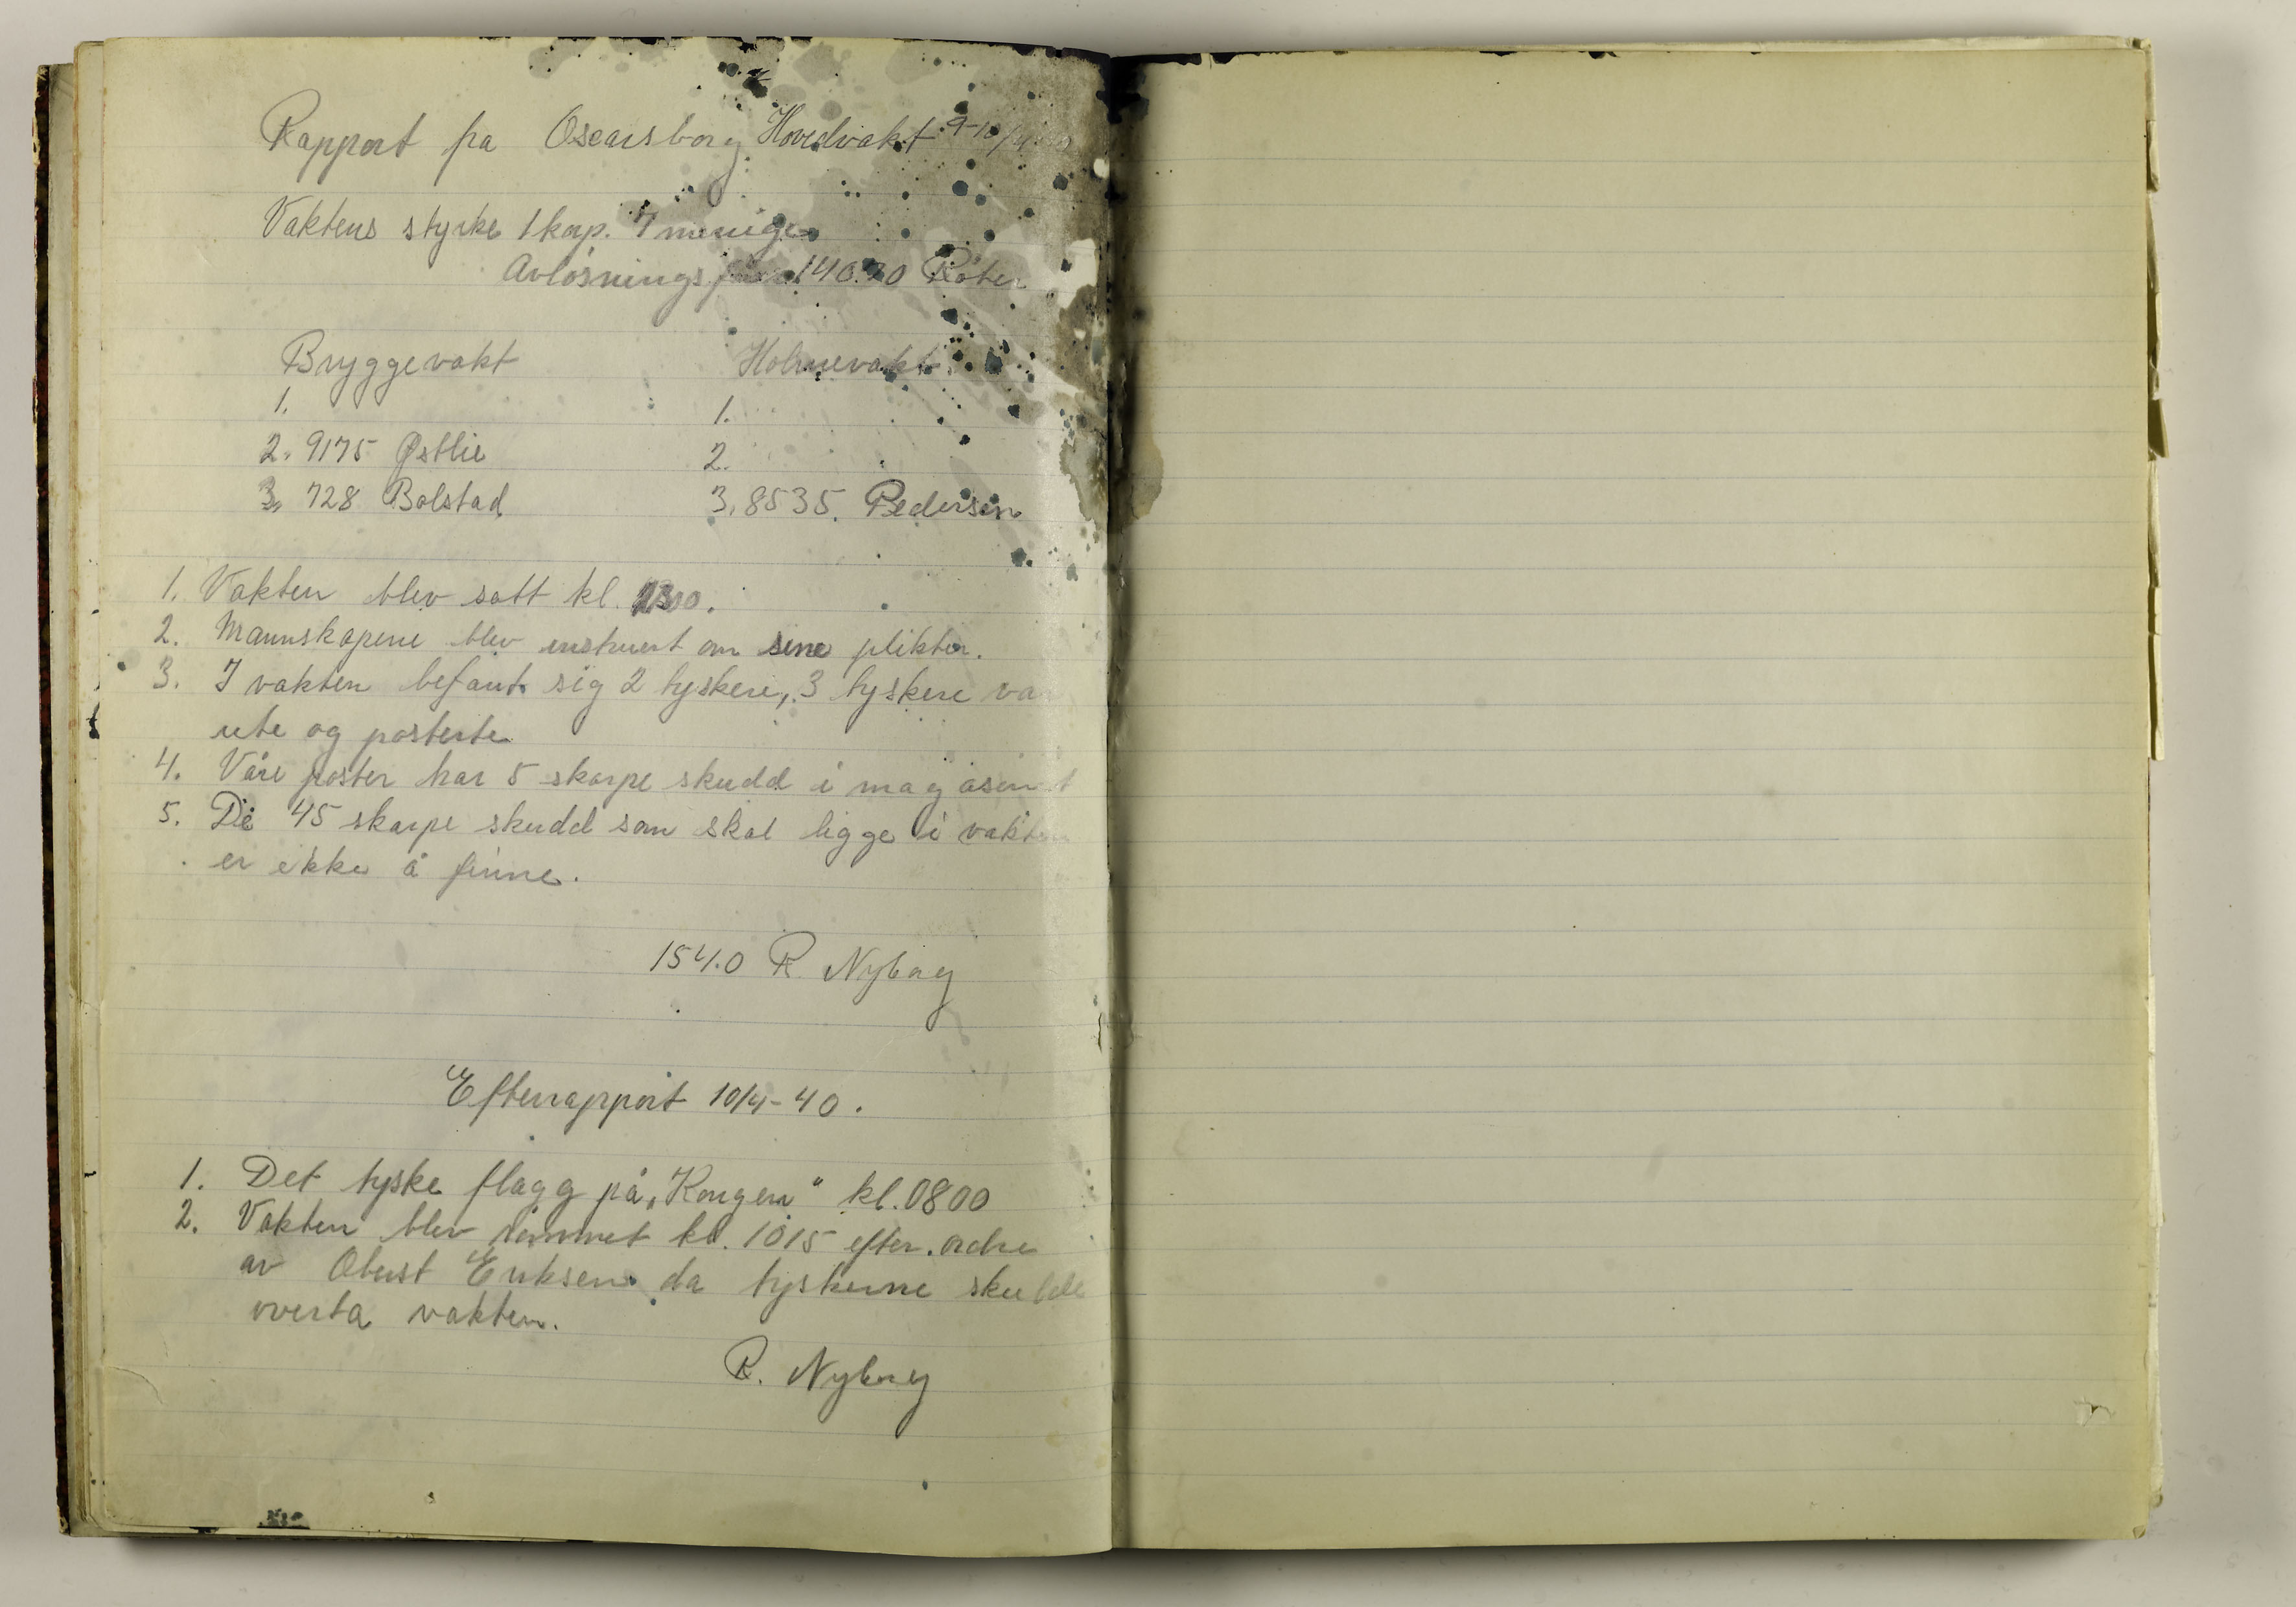 Rapport fra Oscarsborg Hovedvakt 9-10/4
Vaktens styrke 1 korp. 7 menige
Avløsnings
Bryggevakt Holmevakt
1. 1.
2. 9175 Østlie 2.
3. 728 Bolstad 3. 8535. Pedersen
1. Vakten blev satt kl. 1300.
2. Mannskapene blev instruert om sine plikter.
3. I vakten befant sig 2 tyskere, 3 tyskere var
ute og posterte
4. Våre poster har 5 skarpe skudd i magasinet
5. De 45 skarpe skudd som skal ligge i vakten
er ikke å finne.
1540 R. Nyborg
Efterrapport 10/4-40.
1. Det tyske flagg på „Kongen" kl. 0800
2. Vakten blev rømmet kl. 1015 efter ordre
av Oberst Eriksen da tyskerne skulde
overta vakten.
R. Nyborg